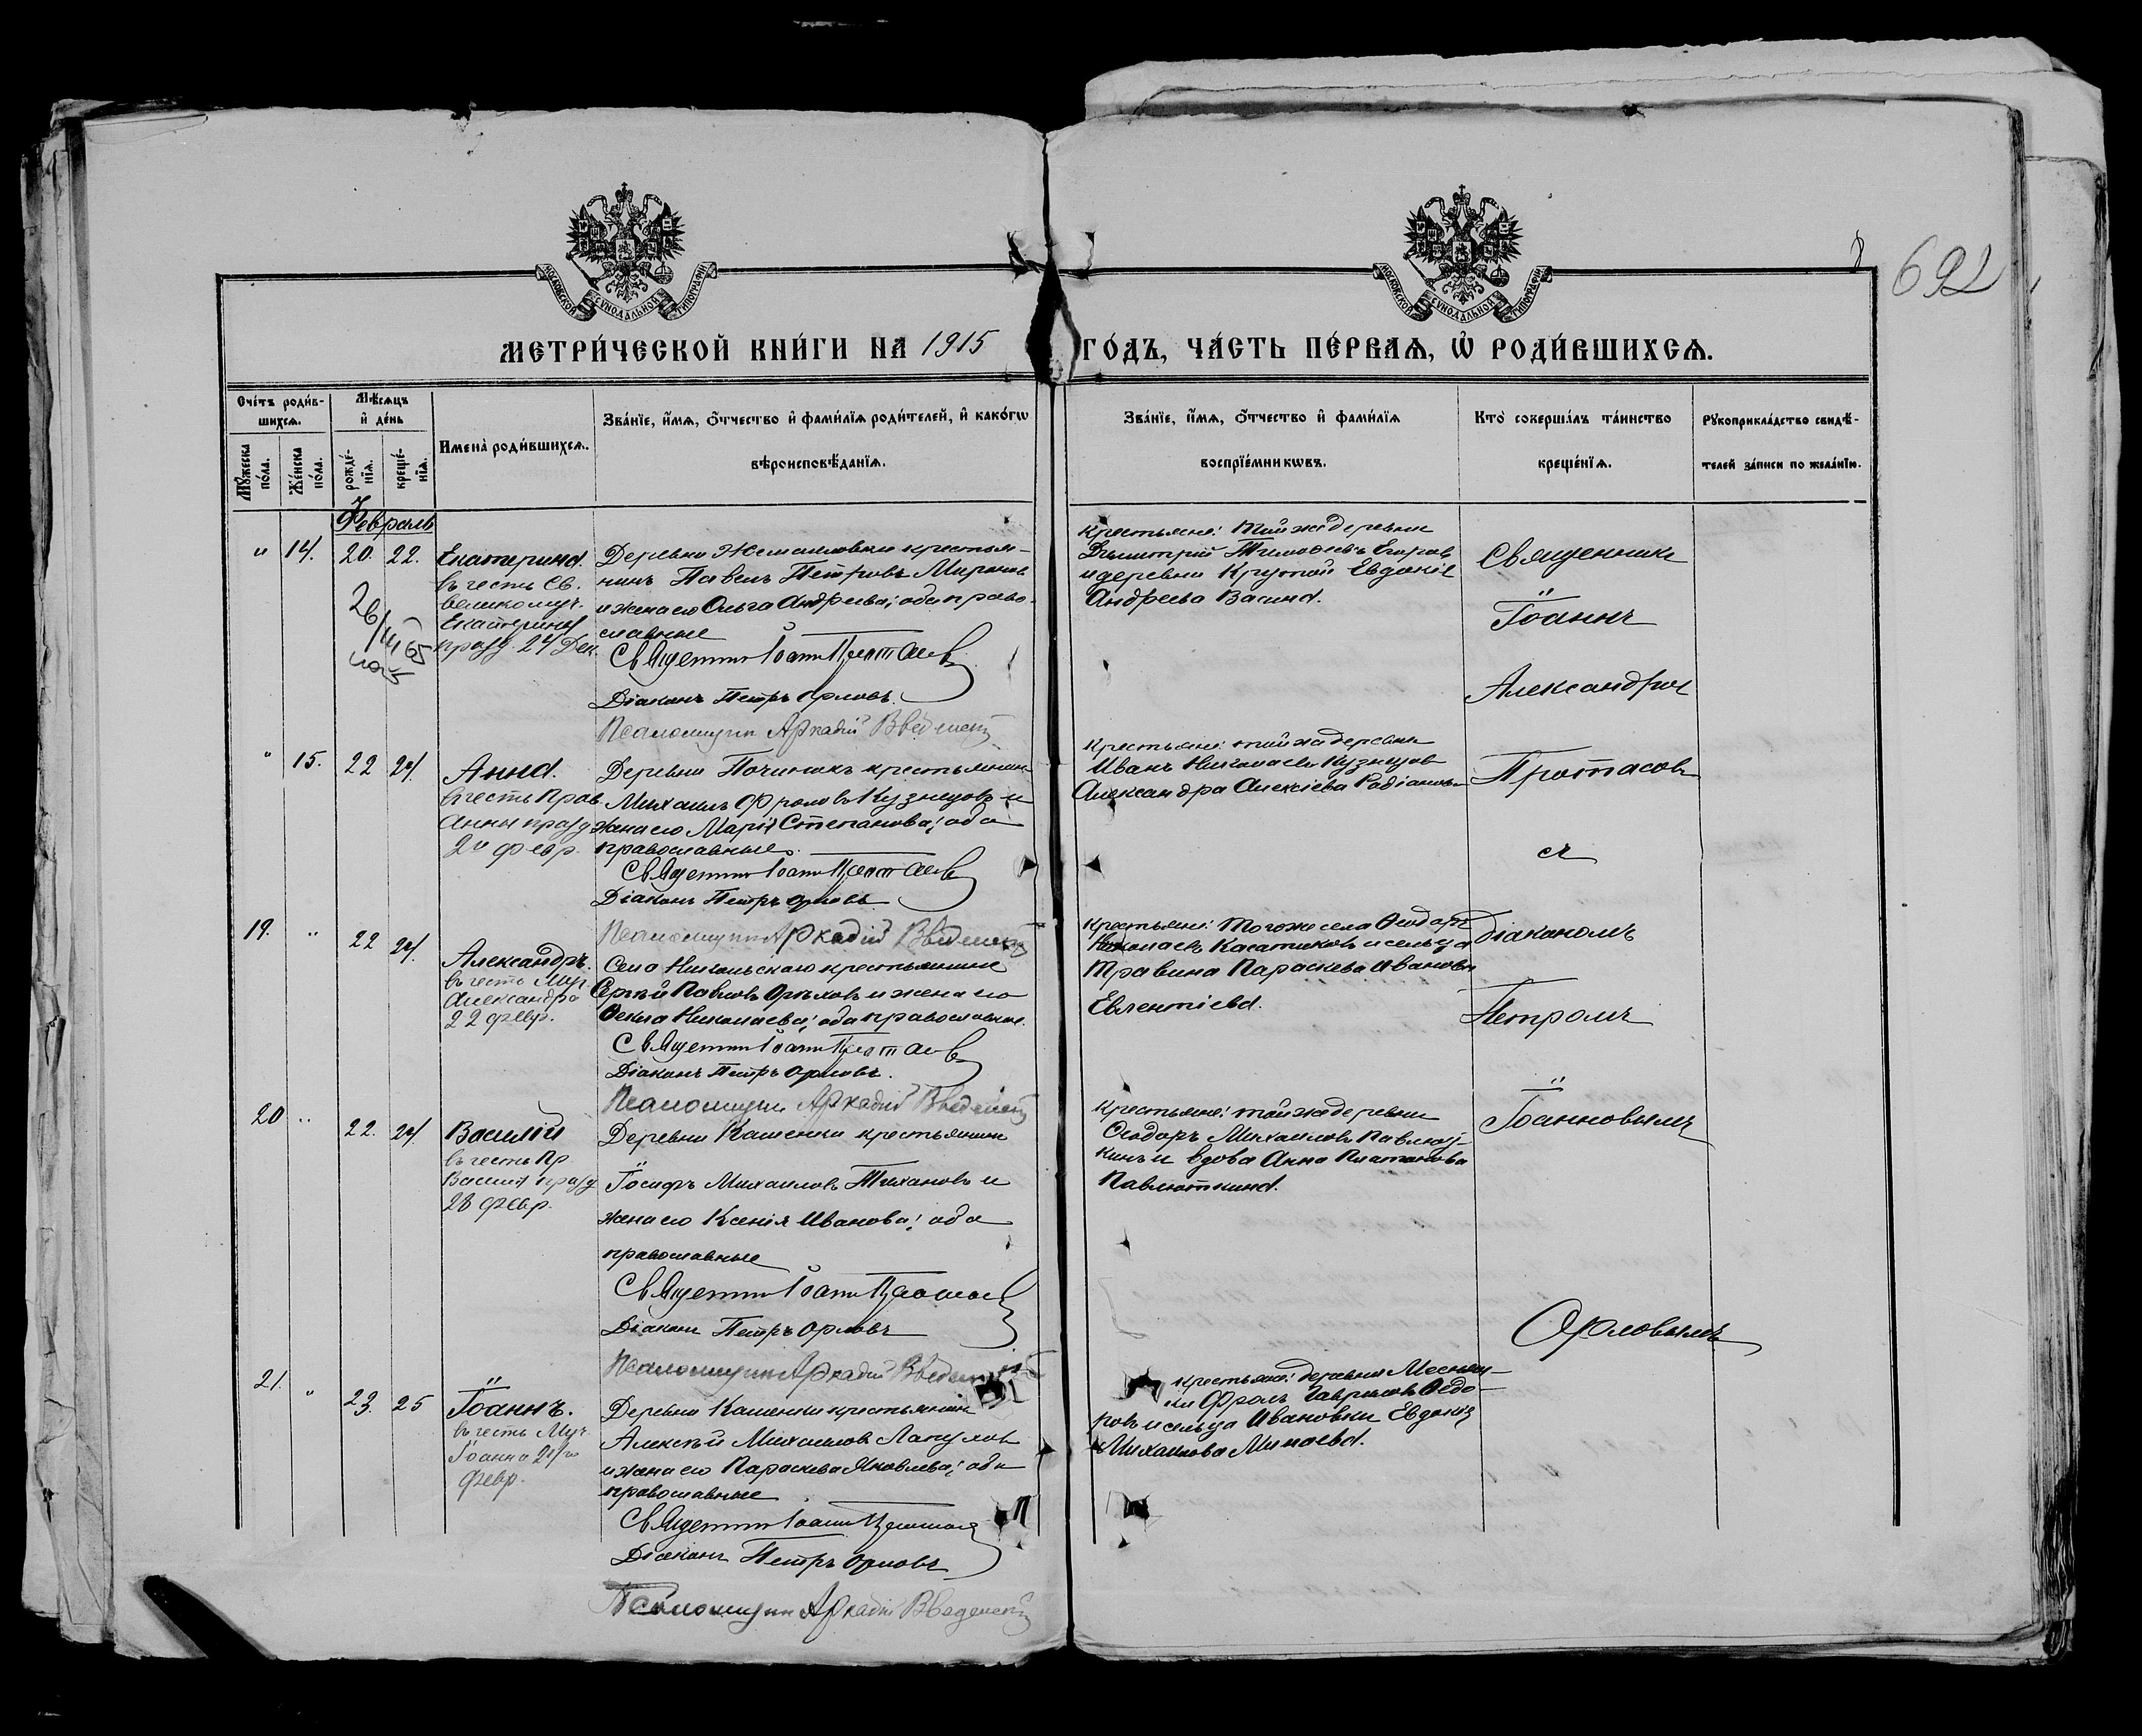 МОСКОВСКОЙ СѴНОДАЛЬНОЙ ТИПОГРАФІИ
МОСКОВСКОЙ СѴНОДАЛЬНОЙ ТИПОГРАФІИ
692
МЕТРИ́ЧЕСКОЙ КНИ́ГИ НА 1915 ГО́ДЪ, ЧА́СТЬ ПЕ́РВАѦ, Ѡ҆ РОДИ́ВШИХСѦ.
Сче́тъ роди́в-
шихсѧ.
Мꙋ́жеска по́ла.
Же́нска по́ла.
Мѣ́сѧцъ
и҆ де́нь
рожде́-
нїѧ.
креще́-
нїѧ.
Имена̀ роди́вшихсѧ.
Зва́нїе, и҆́мѧ, ѻ҆́тчество и҆ фами́лїѧ роди́телей, и҆ како́гѡ
вѣроисповѣ́данїѧ.
Зва́нїе, и҆́мѧ, ѻ҆́тчество и҆ фами́лїѧ
воспрїе́мникѡвъ.
Кто̀ соверша́лъ та́инство
креще́нїѧ.
Рꙋкоприкла́дство свидѣ́-
телей за́писи по жела́нїю.
Февраль
" 14. 20. 22.
Екатерина.
въ честь Св.
великомуч.
Екатерины
празд. 24 Дек.
26/III 65
Деревни крестья-
нинъ Павелъ Петровъ Миронов
и жена его Ольга Андреева; оба право-
славные
Священникъ Іоаннъ Протасовъ
Діаконъ Петръ Орловъ.
Псаломщикъ Аркадій Введенскій
Крестьяне: той же деревни
Димитрій Тимофеевъ Егоров
и деревни Крутой Евдокія
Андреева Васина.
Священникъ
Іоаннъ
Александров
Протасовъ
съ
діакономъ
Петромъ
Іоанновымъ
Орловымъ
" 15. 22 24.
Анна.
въ честь Прав.
Анны празд
февр.
Деревни Починокъ крестьянинъ
Михаилъ Фроловъ Кузнецовъ и
жена его Марія Степанова; оба
православные.
Священникъ Іоаннъ Протасовъ
Діаконъ Петръ Орловъ
Псаломщикъ Аркадій Введенскій
Крестьяне: той же деревни
Иванъ Николаевъ Кузнецов
Александра Алексіева Родіонова
19. " 22 24.
Александръ.
въ честь Муч.
Александра
22 февр.
Села Никольскаго крестьянинъ
Сергѣй Павловъ Орѣховъ и жена его
Ѳекла Николаева; оба православные.
Священникъ Іоаннъ Протасовъ
Діаконъ Петръ Орловъ.
Псаломщикъ Аркадій Введенскій
Крестьяне: того же села Ѳеодоръ
Николаевъ Касаткинъ и сельца
Травина Параскева Иванова
Евлентіева.
20 " 22. 24.
Василій
въ честь Пр
Василія празд
28 февр.
Деревни Каменки крестьянинъ
Іосифъ Михаиловъ Тихановъ и
жена его Ксенія Иванова; оба
православные
Священникъ Іоаннъ Протасовъ
Діаконъ Петръ Орловъ
Псаломщикъ Аркадій Введенскій
Крестьяне: той же деревни
Ѳеодоръ Михаиловъ Павлют-
кинъ и вдова Анна Платонова
Павлюткина.
21. " 23. 25
Іоаннъ.
въ честь Муч.
Іоанна 24го
февр.
Деревни Каменки крестьянинъ
Алексѣй Михаиловъ Лапухов
и жена его Параскева Яковлева; оба
православные
Священникъ Іоаннъ Протасовъ
Діаконъ Петръ Орловъ
Псаломщикъ Аркадій Введенскій
крестьяне: деревни
Фролъ Гавриловъ Ѳедо-
ровъ и сельца Ивановки Евдокія
Михаилова Минаева.